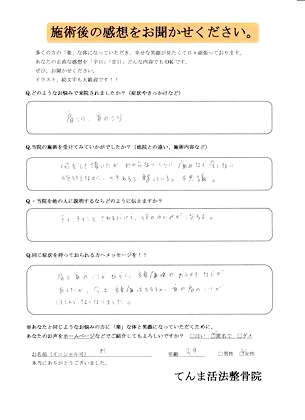 施術後の感想をお聞かせください。
多くの方の「楽」な体になっていただき、幸せな笑顔が見たくて日々頑張っております。
あなたの正直な感想を「辛口」「甘口」どんな内容でもOKです。
ぜひ、お聞かせください。
イラスト、絵文字も大歓迎です！！
Q.どのようなお悩みで来院されましたか？（症状やきっかけなど）
肩こり、首のこり
Q.当院の施術を受けてみていかがでしたか？（他院との違い、施術内容など）
何をして頂いたか わからないくらい 痛みなど全くない
不思議。
Q.当院を他の人に説明するならどのように伝えますか？
Q.同じ症状を持っておられる方へメッセージを！！
肩と首のこりがひどく、頭痛
あったが、今は 頭痛はもちろん、首や肩のこりが
ほとんどなくなりました。
※あなたと同じようなお悩みの方に「楽」な体と笑顔になっていただくために、
あなたのお声をホームページなどでご紹介してもよろしいですか？ □はい □匿名で □ダメ
お名前（イニシャル可） 年齢 39 □男性 □女性
本当にありがとうございました。
てんま活法整骨院